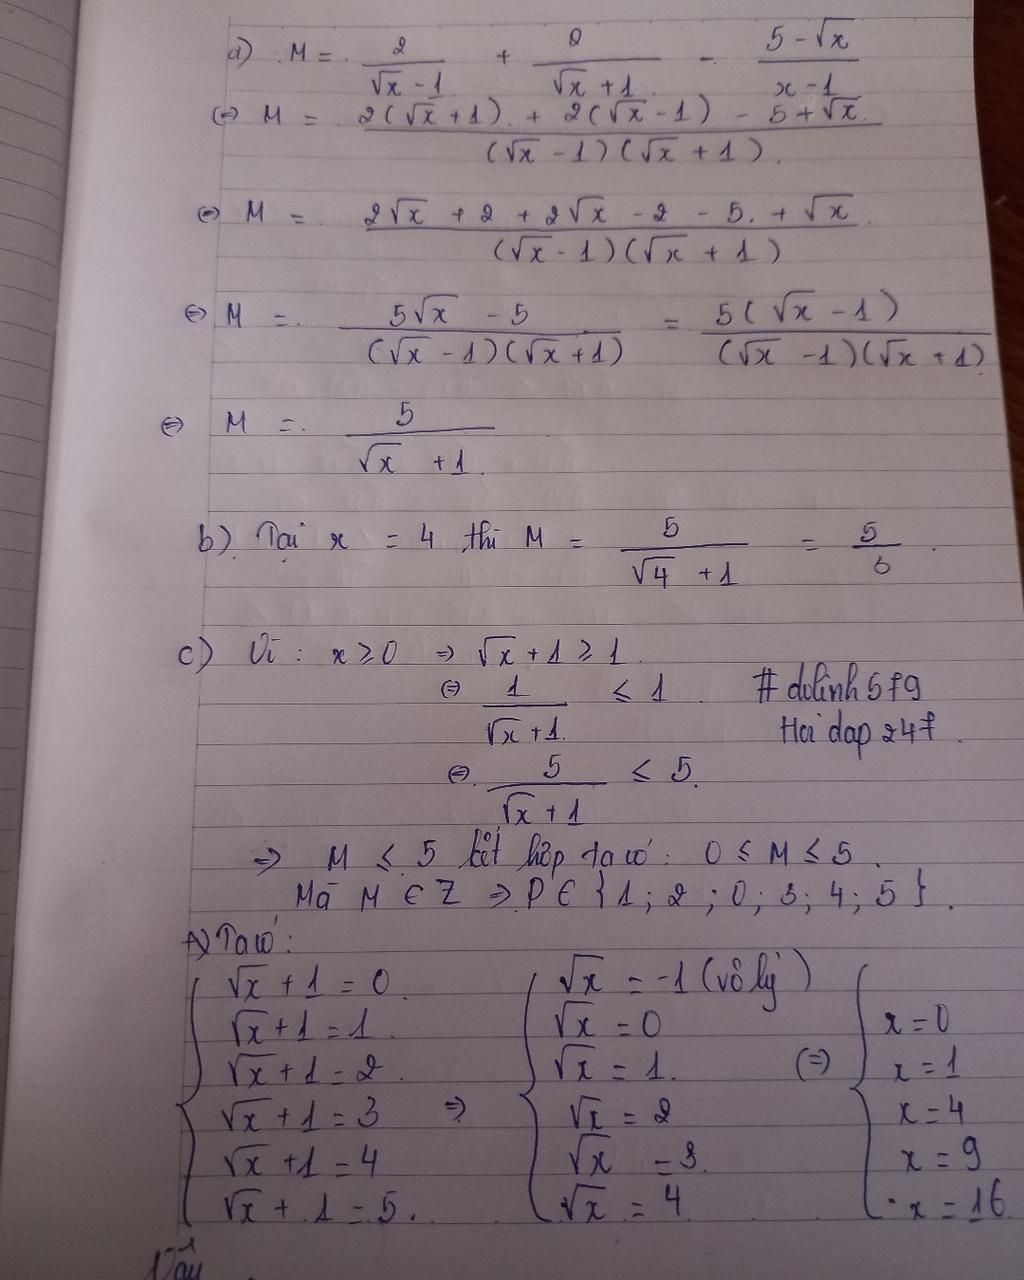 a) M = 2/(√x - 1) + 2/(√x + 1) - (5 - √x)/(x - 1)
(=) M = (2(√x + 1) + 2(√x - 1) - 5 + √x)/((√x - 1)(√x + 1)).
(=) M = (2√x + 2 + 2√x - 2 - 5. + √x)/((√x - 1)(√x + 1))
(=) M = (5√x - 5)/((√x - 1)(√x + 1)) = 5(√x - 1)/((√x - 1)(√x + 1))
(=) M = 5/(√x + 1)
b) Tại x = 4 thì M = 5/(√4 + 1) = 5/6.
c) Vì : x ≥ 0 => √x + 1 ≥ 1
(=) 1/(√x + 1) ≤ 1
# dolinh579
Hoi dap 247.
(=) 5/(√x + 1) ≤ 5.
=> M ≤ 5 kết hợp ta có : 0 ≤ M ≤ 5.
Mà M ∈ Z => P ∈ {1; 2; 0; 3; 4; 5}.
Ta có :
√x + 1 = 0 √x = -1 (vô lý)
√x + 1 = 1 √x = 0 x = 0
√x + 1 = 2 √x = 1 (=) x = 1
√x + 1 = 3 => √x = 2 x = 4
√x + 1 = 4 √x = 3 x = 9
√x + 1 = 5. √x = 4 x = 16
Vậy